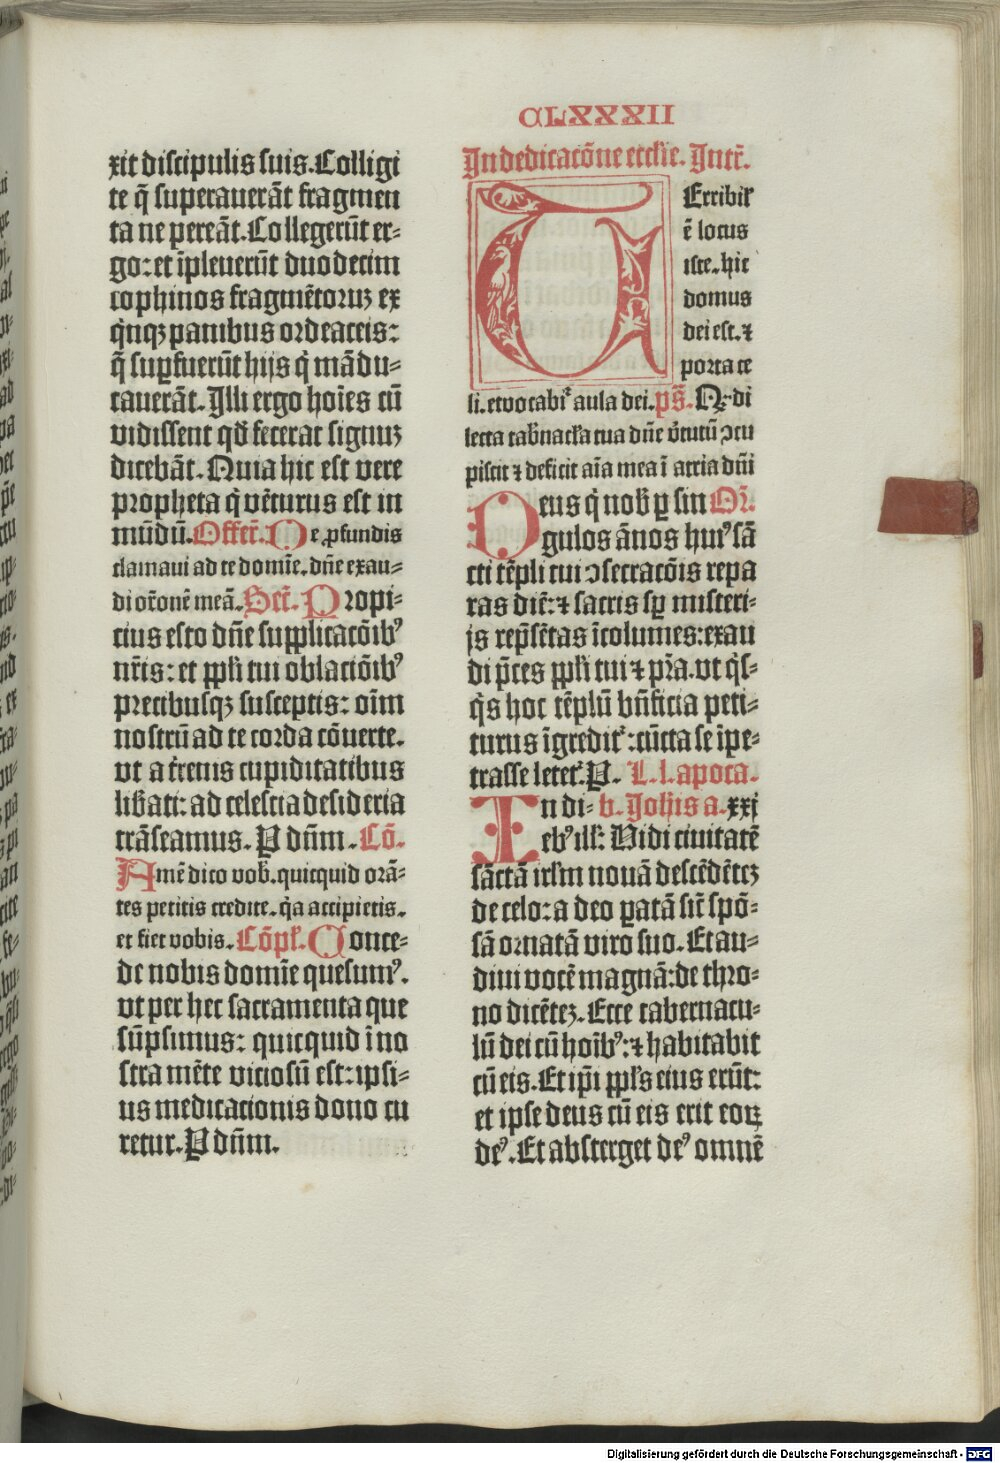 CLXXXII
xit discipulis suis. Colligi
te q̃ superauerãt fragmen
ta ne pereãt. Collegerũt er-
go: et ĩpleuerũt duodecim
cophinos fragmẽtoruꝫ ex
q̃nqꝫ panibus ordeaceis:
q̃ suꝑfuerũt hijs q̇ mãdu-
cauerãt. Illi ergo hoĩes cũ
vidissent qď fecerat signuꝫ
dicebãt. Quia hic est vere
propheta q̇ vẽturus est in
mũdũ. Offert̃. De ꝓfundis
clamaui ad te domĩe. dñe exau-
di or̃onẽ meã. Secr̃. Propi-
cius esto dñe supplicacõibꝰ
nr̃is: et ppl̓i tui oblaciõibꝰ
precibusqꝫ susceptis: oĩm
nostrũ ad te corda cõuerte.
vt a t̓renis cupiditatibus
lib̓ati: ad celestia desideria
trãseamus. P dñm. Cõ.
Amẽ dico vob̓. quicquid orã-
tes petitis credite. q̃a accipietis.
et fiet vobis. Cõpl̓. Conce-
de nobis domĩe quesumꝰ.
vt per hec sacramenta que
sũpsimus: quicquid ĩ no
stra mẽte viciosũ est: ipsi-
us medicacionis dono cu
retur. P dñm.
In dedicacõne eccl̓ie. Intr̃.
Terribil̓
ẽ locus
iste. hic
domus
dei est. ⁊
porta ce
li. et vocabiť aula dei. ps̃. Q̃ di
lecta tab̓nacl̓a tua dñe v̓tutũ ↄcu
piscit ⁊ deficit aĩa mea ĩ atria dñi
Deus q̇ nob̓ ꝑ sin Or̃.
gulos ãnos huiꝰ sã
cti tẽpli tui ↄsecracõis repa
ras diẽ: ⁊ sacris sꝑ misteri-
js rep̃sẽtas ĩcolumes: exau
di p̃ces ppl̓i tui ⁊ pr̃a. vt q̇s-
q̇s hoc tẽplũ bñficia peti-
turus ĩgrediť: cũcta se ĩpe-
trasse leteť. P. L. l. apoca.
In di- b. Joh̓is a. xxj
ebꝰ ill̓: Vidi ciuitatẽ
sãctã irl̓m nouã descẽdẽteꝫ
de celo: a deo ꝑatã sic̃ spõ-
sã ornatã viro suo. Et au-
diui vocẽ magnã: de thro-
no dicẽteꝫ. Ecce tabernacu-
lũ dei cũ hoĩbꝰ: ⁊ habitabit
cũ eis. Et ip̃i ppl̓s eius erũt:
et ipse deus cũ eis erit eoꝝ
deꝰ. Et absterget deꝰ omnẽ
Digitalisierung gefördert durch die Deutsche Forschungsgemeinschaft - DFG